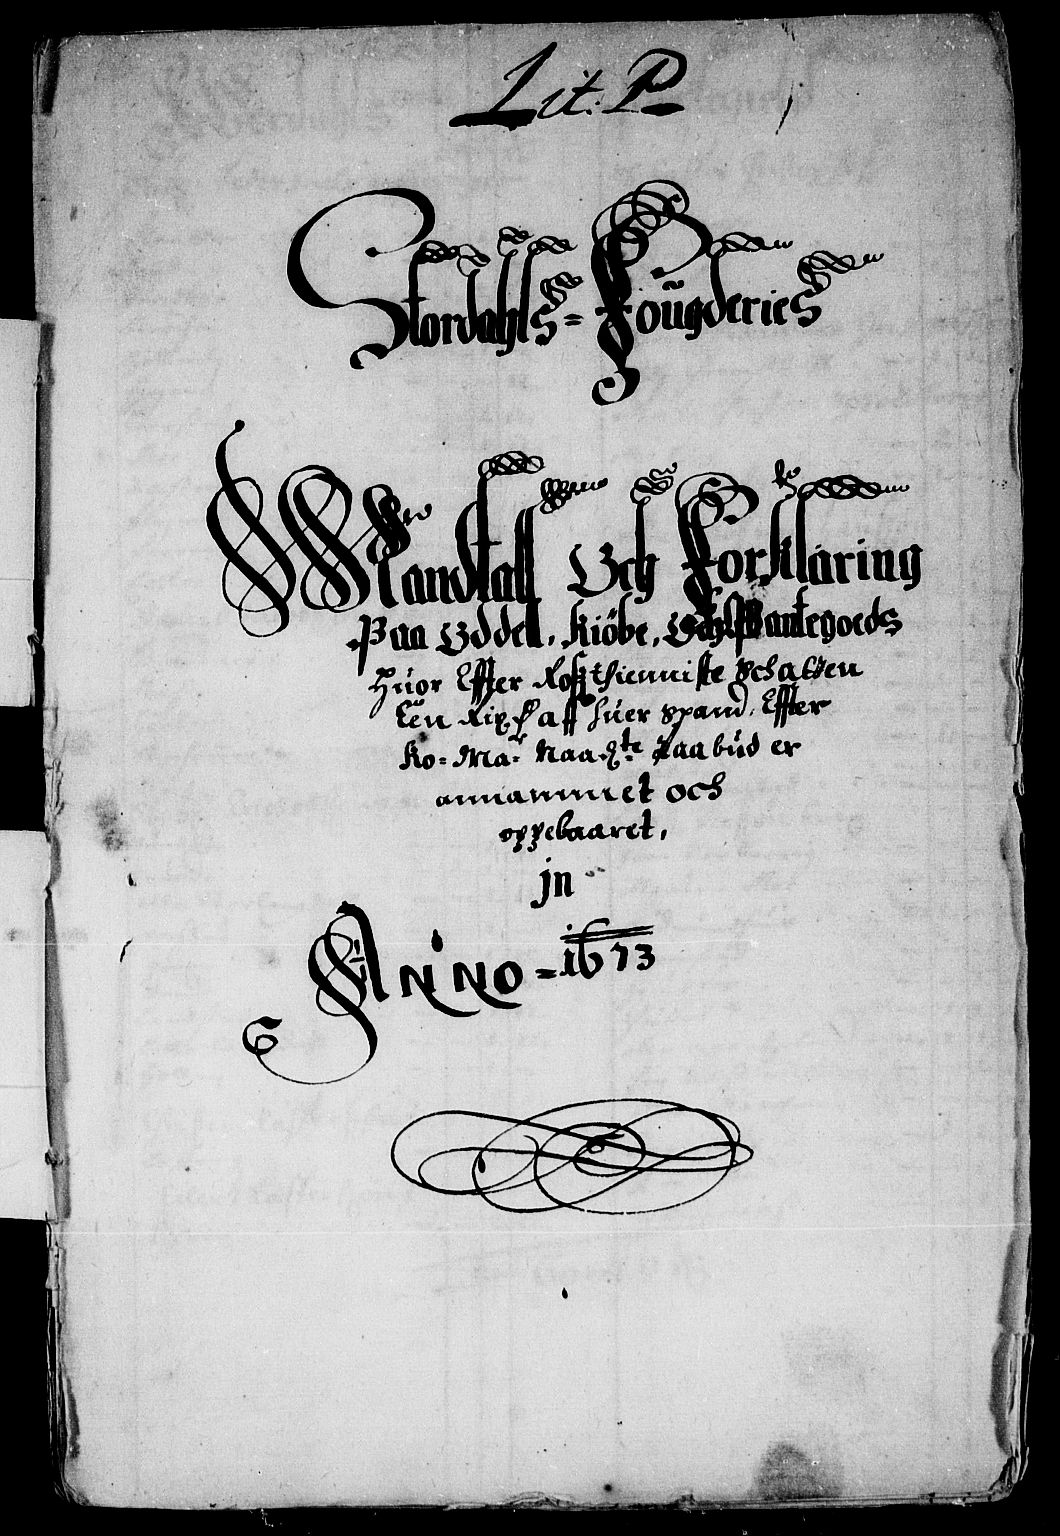 Lit: P
Stordahls = Foügderies
Mandtall Och Forklaring
Paa Oddel, Kiöbe, Och Pantegoeds
Hüor Effter Rosthienniste Schatten
Een Rix aff hüer Spand, Effter
Ko = Ma: Naa: Paabüd er
annammet och
oppebaaret,
jn
Anno = 1673